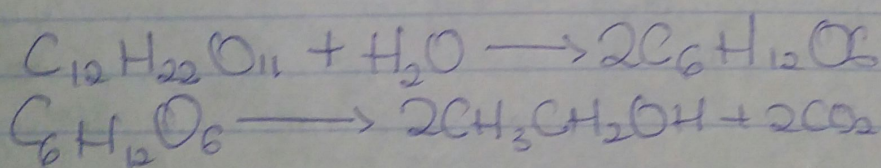 C₁₂H₂₂O₁₁ + H₂O ⟶ 2C₆H₁₂O₆
C₆H₁₂O₆ ⟶ 2CH₃CH₂OH + 2CO₂